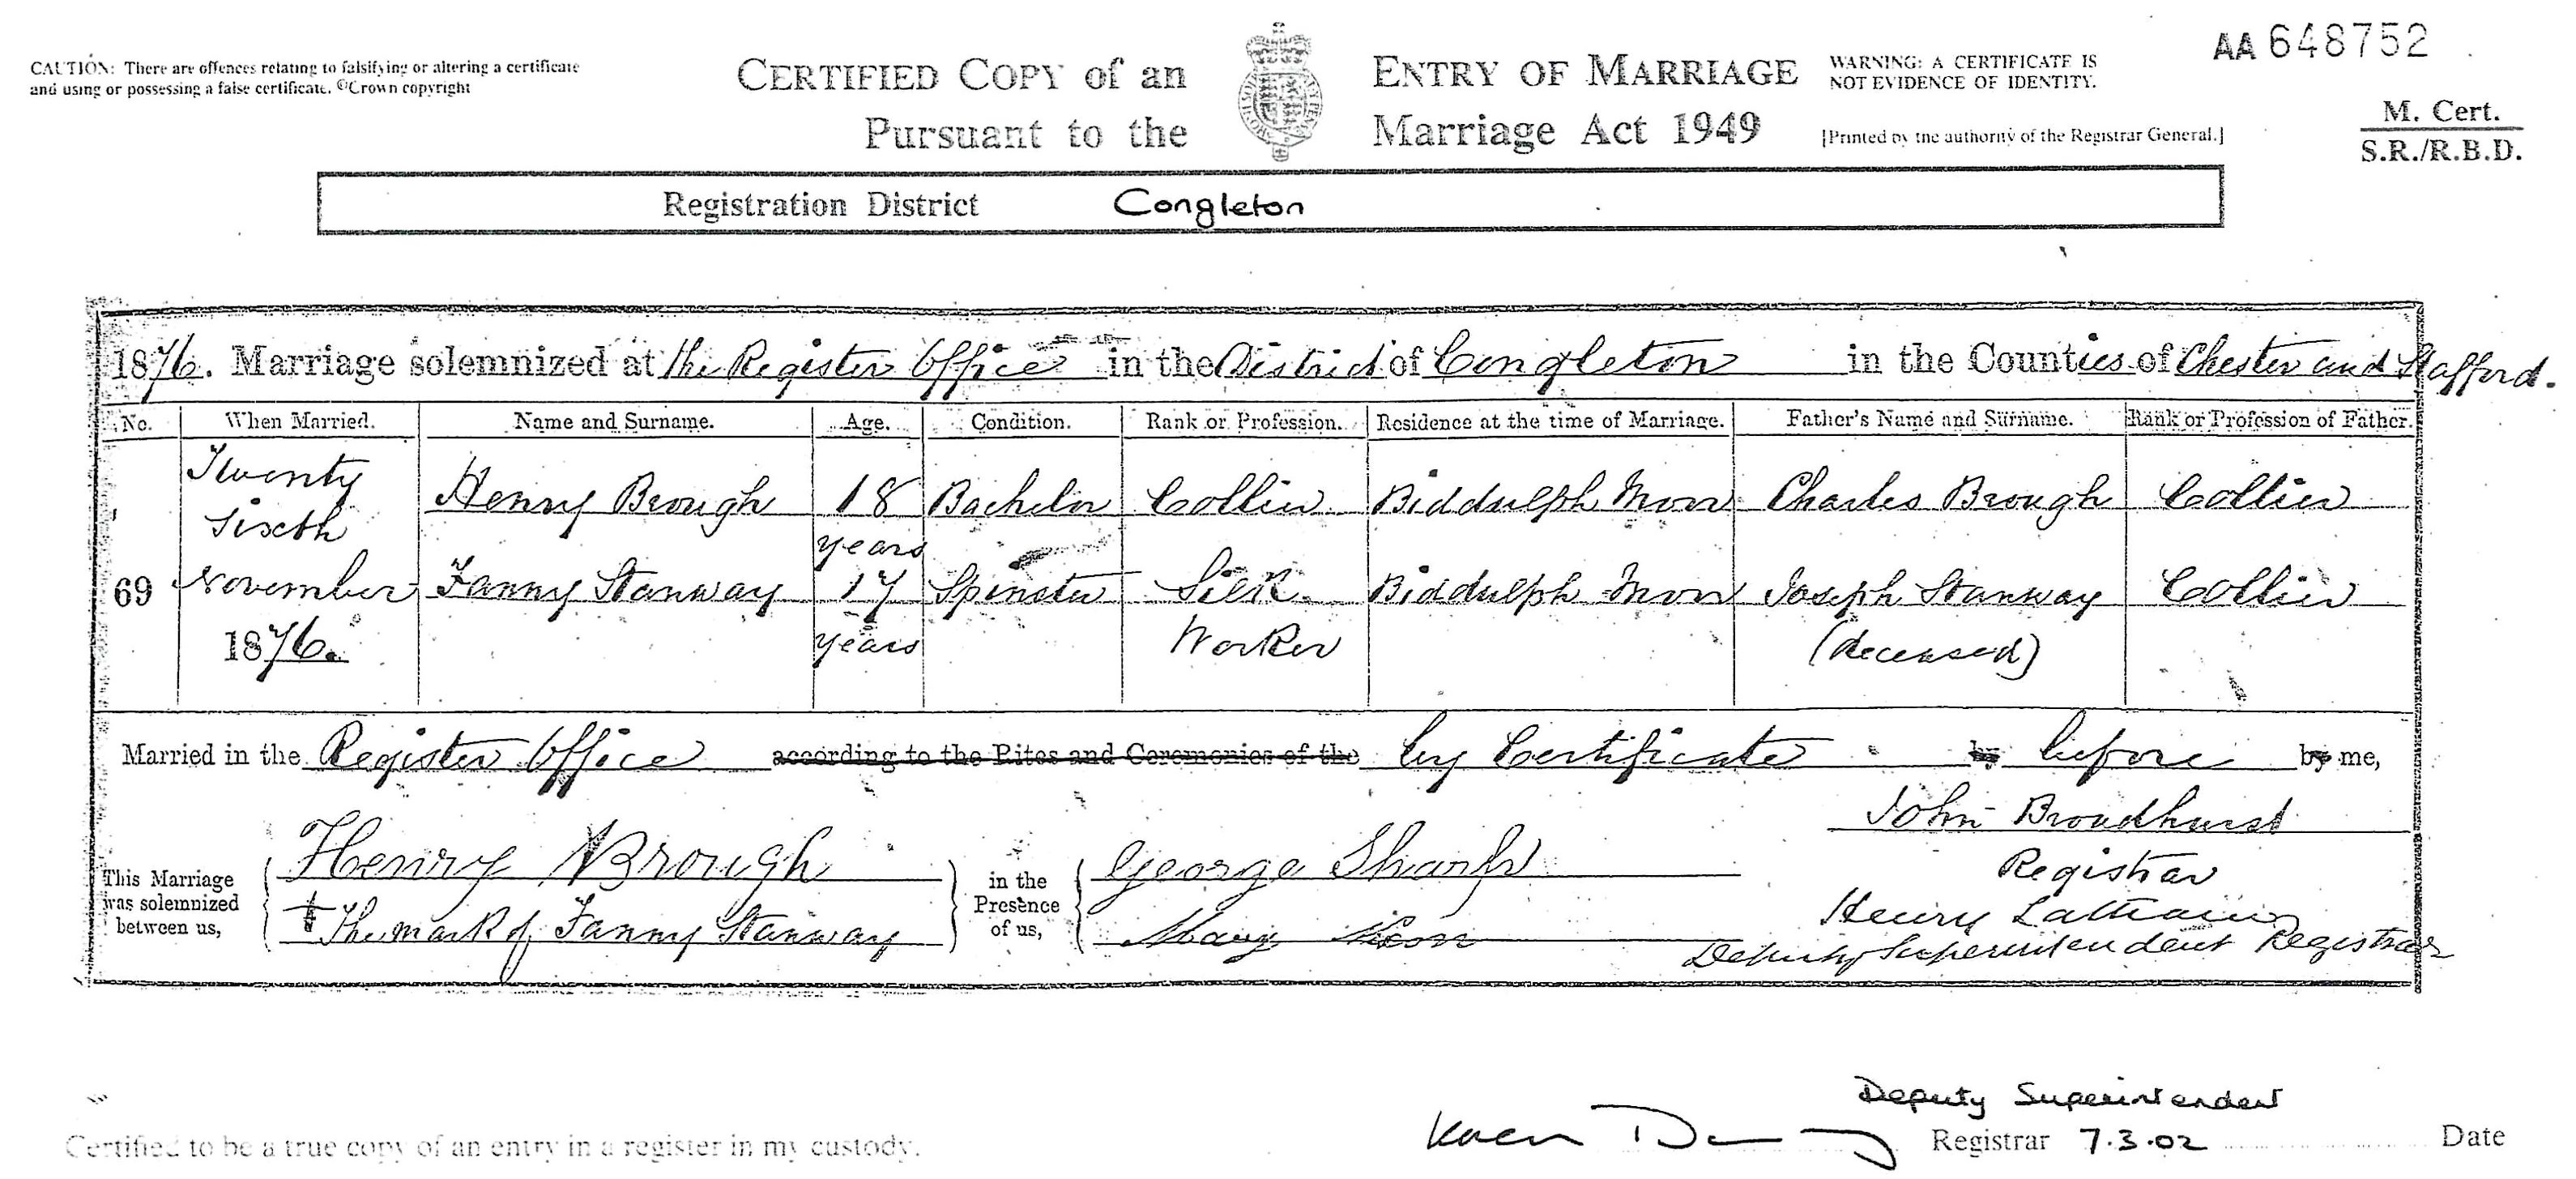 CAUTION: There are offences relating to falsifying or altering a certificate
and using or possessing a false certificate. ©Crown copyright
CERTIFIED COPY of an ENTRY OF MARRIAGE
Pursuant to the Marriage Act 1949
WARNING: A CERTIFICATE IS
NOT EVIDENCE OF IDENTITY.
[Printed by the authority of the Registrar General.]
AA 648752
M. Cert.
S.R./R.B.D.
Registration District Congleton
1876. Marriage solemnized at the Register Office in the District of Congleton in the Counties of Chester and Stafford.
No. When Married. Name and Surname. Age. Condition. Rank or Profession. Residence at the time of Marriage. Father's Name and Surname. Rank or Profession of Father.
69 Twenty Sixth November 1876.
Henry Brough 18 years Bachelor Collier Biddulph Moor Charles Brough Collier
Fanny Stanway 17 years Spinster Silk Worker Biddulph Moor Joseph Stanway (deceased) Collier
Married in the Register Office according to the Rites and Ceremonies of the by Certificate by before by me,
This Marriage
was solemnized
between us,
Henry Brough
† The mark of Fanny Stanway
in the
Presence
of us,
George Sharp
Mary
John Broadhurst
Registrar
Henry Latham
Deputy Superintendent Registrar
Certified to be a true copy of an entry in a register in my custody.
Karen
Deputy Superintendent
Registrar 7.3.02 Date